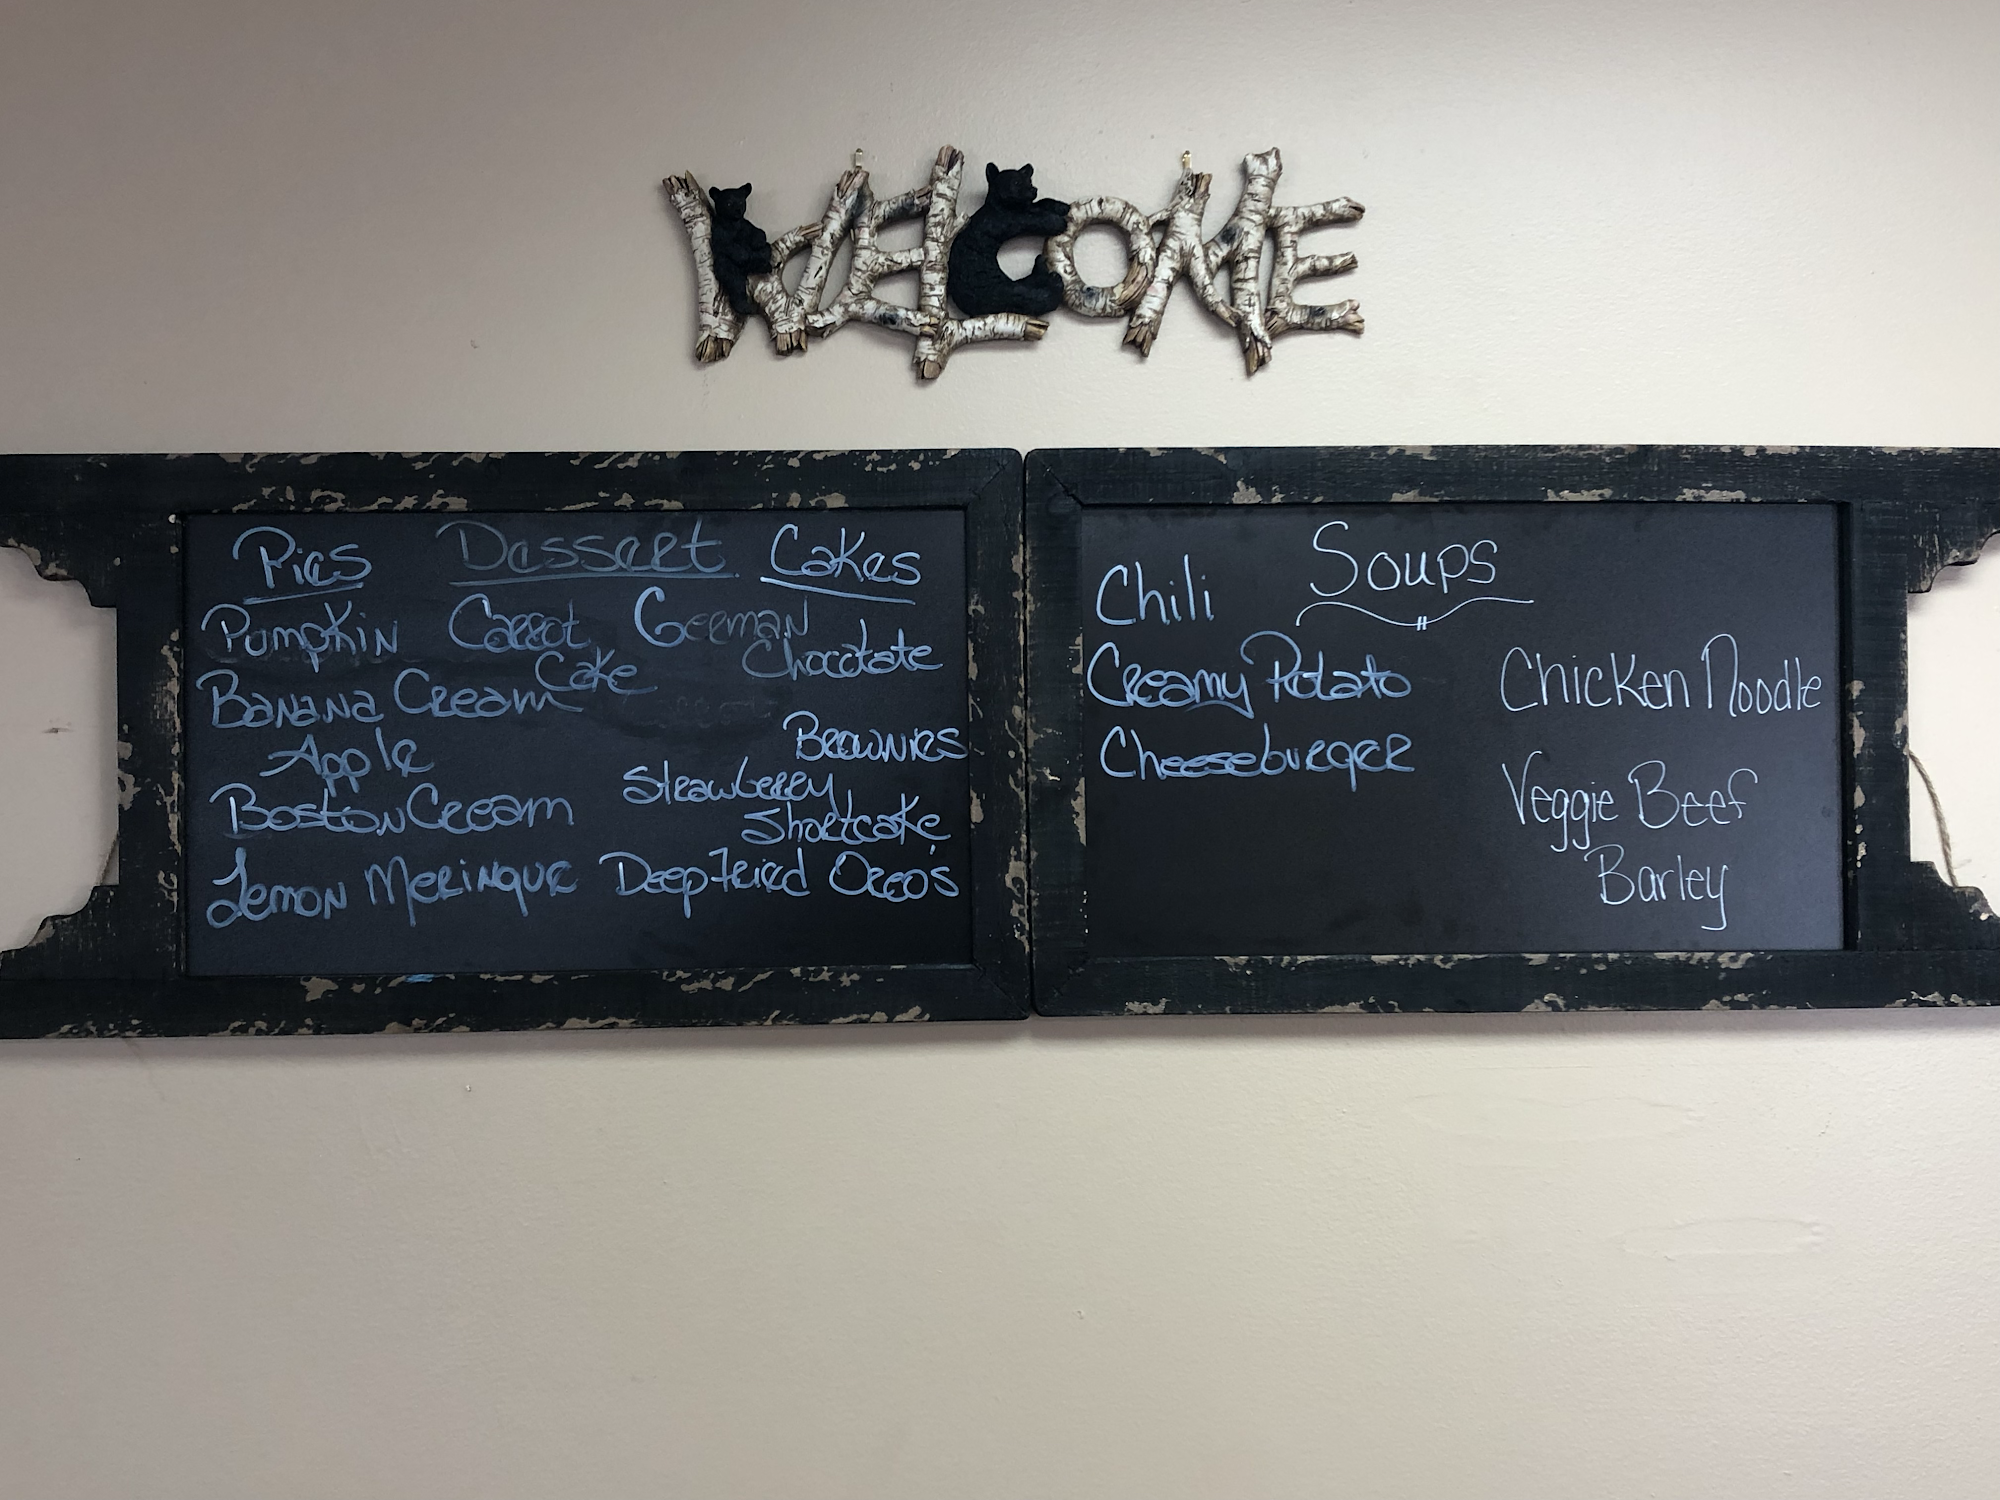 WELCOME
Pies Dessert Cakes
Pumpkin Carrot German
Cake Chocolate
Banana Cream
Apple Brownies
Strawberry
Boston Cream Shortcake
Lemon Meringue Deep Fried Oreo's
Soups
Chili
Creamy Potato Chicken Noodle
Cheeseburger
Veggie Beef
Barley